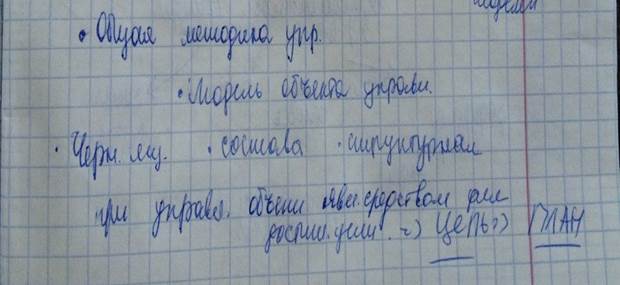 моделей
• Общая методика упр.
• Модель объекта управл.
• Черн. ящ. • состава • структурная
при управл. объект явл. средством для
достиж. цели. => ЦЕЛЬ => ПЛАН